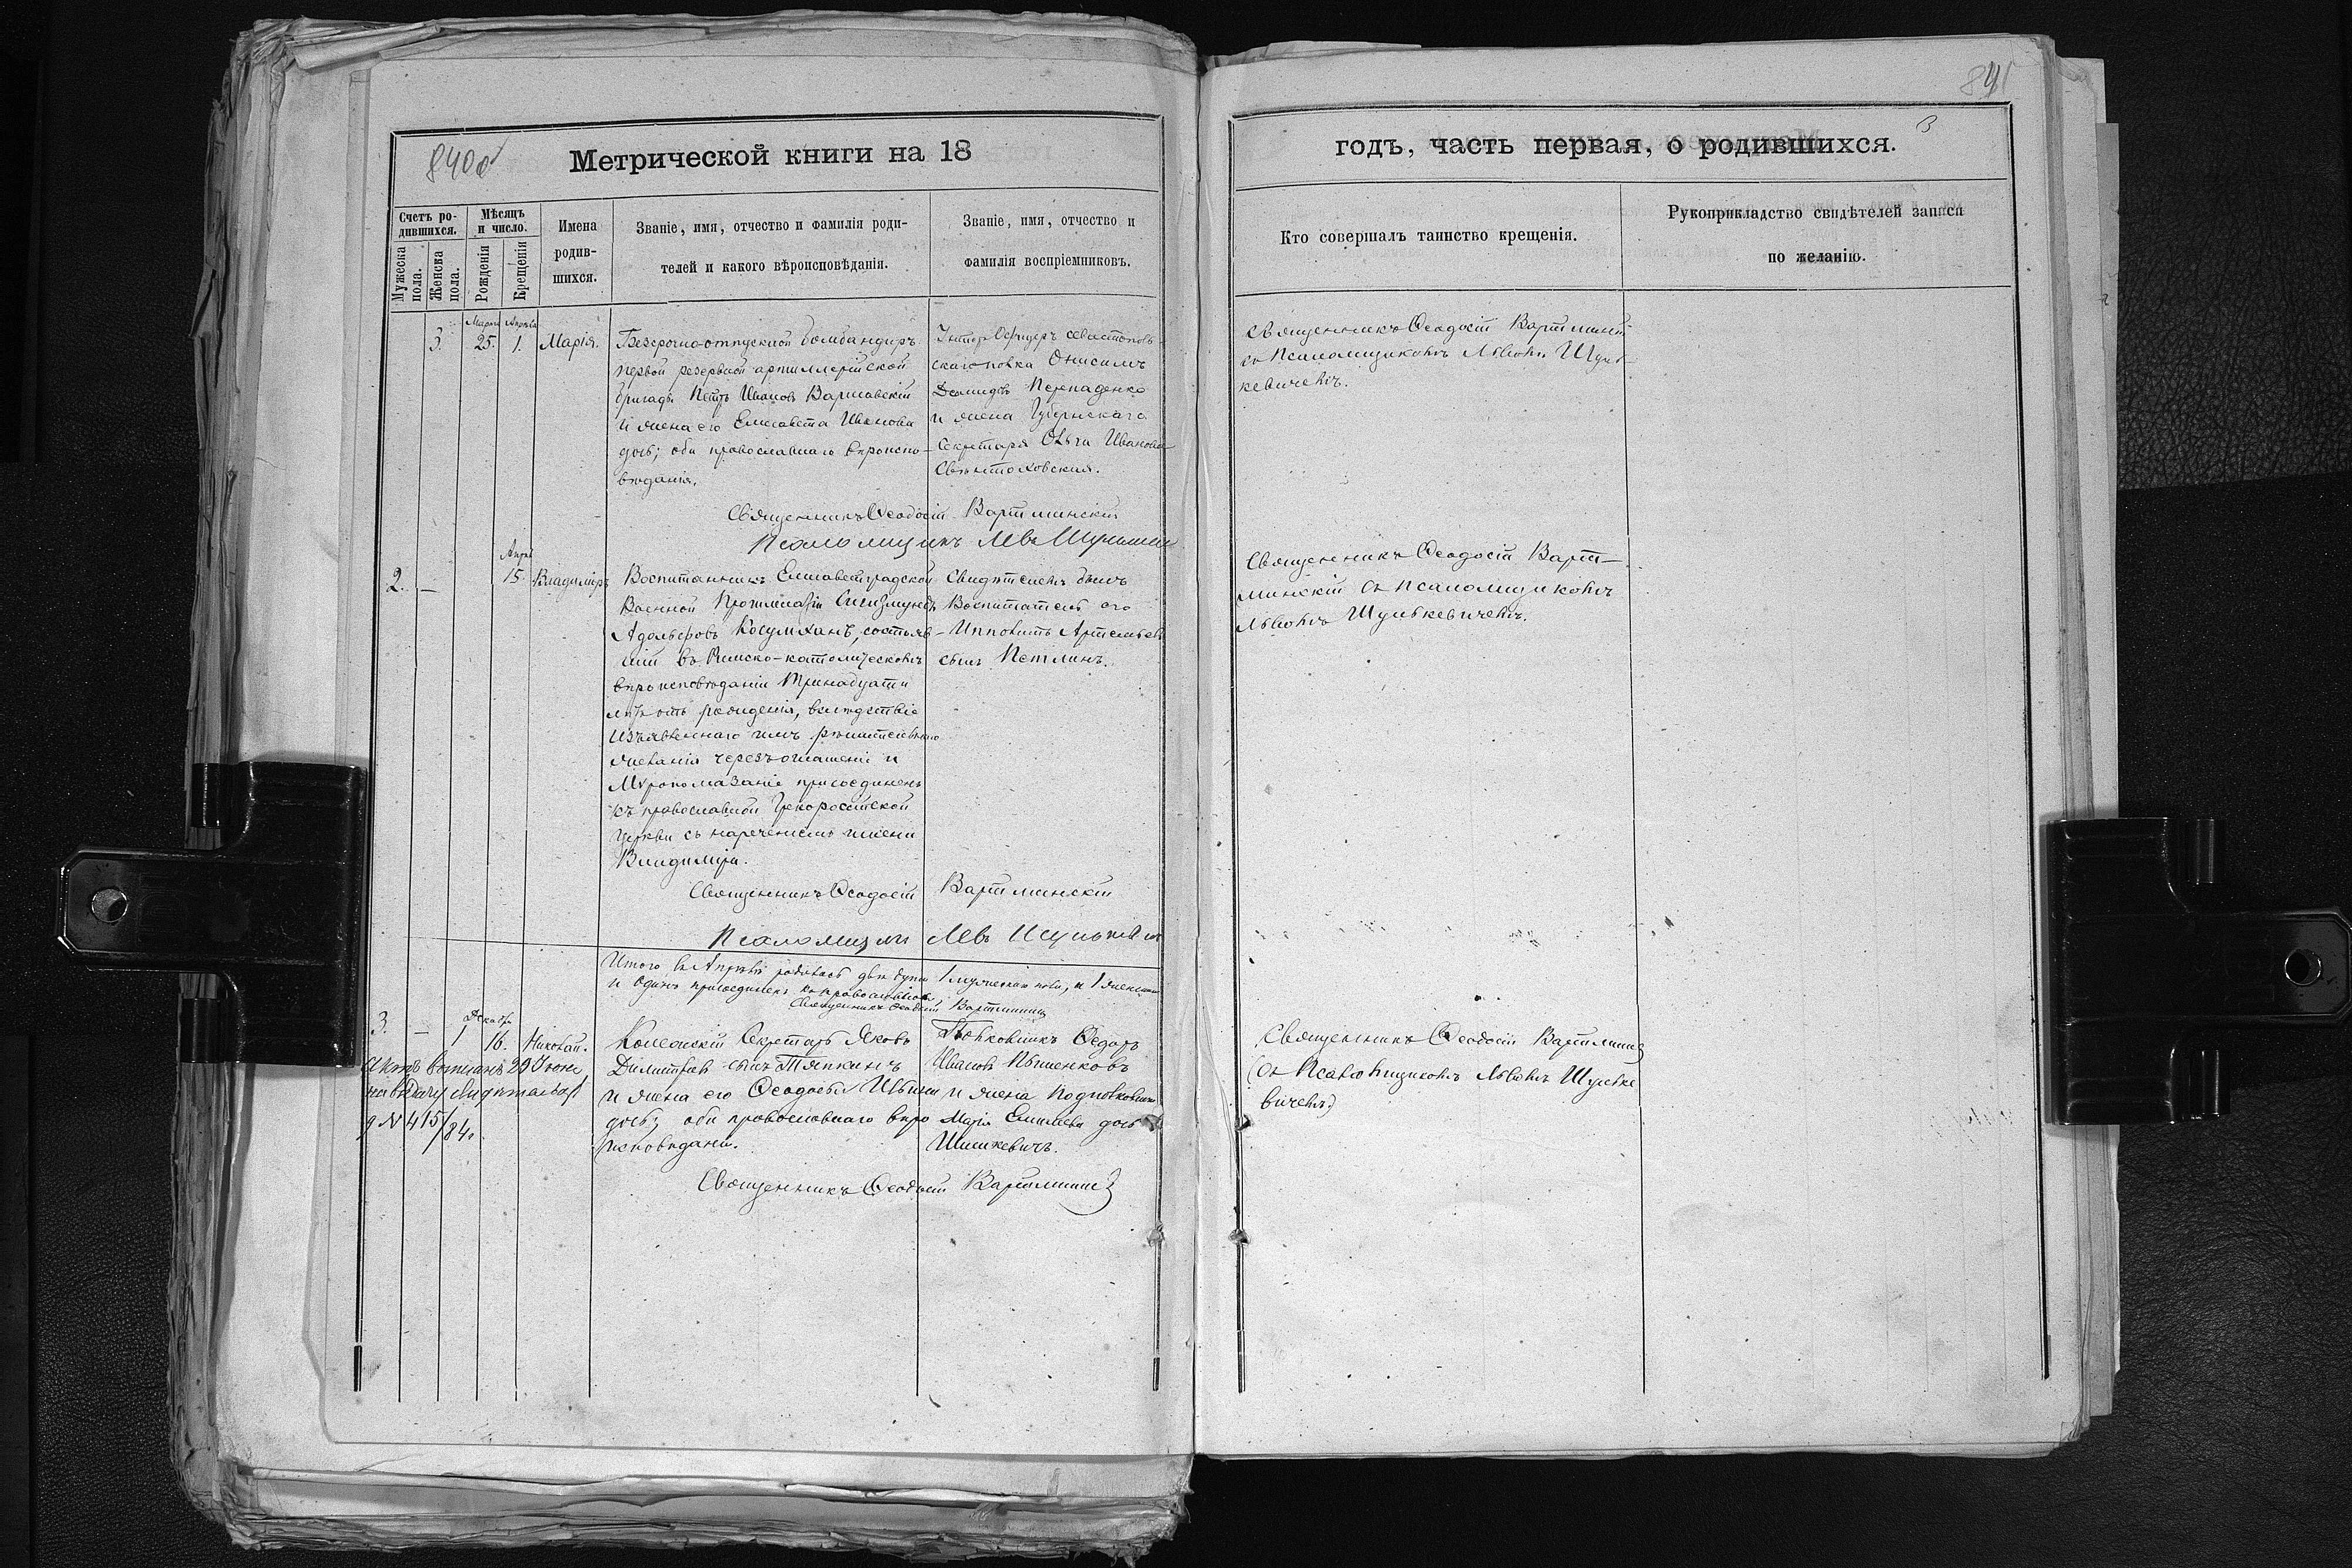 840об
Метрической книги на 18
Счетъ родившихся.
Мужеска пола.
Женска пола.
Мѣсяцъ и число.
Рожденія
Крещенія
Имена родившихся.
Званіе, имя, отчество и фамилія роди-
телей и какого вѣроисповѣданія.
Званіе, имя, отчество и
фамилія воспріемниковъ.
3.
Марта 25.
Апрѣля 1.
Марія.
Безсрочно-отпускной бомбандиръ
первой резервной артиллерійской
бригады Петръ Ивановъ Варшавскій
и жена его Елисавета Иванова
дочь; оба православнаго вѣроиспо-
вѣданія.
Унтеръ-Офицеръ севастополь-
скаго полка Онисимъ
Демидовъ Перепаденко
и жена Губернскаго
Секретаря Ольга Иванова
Свентоховская.
Священникъ Ѳеодосій Вартминскій
Псаломщикъ Левъ
2. —
Апрѣл 15.
Владиміръ
Воспитанникъ Елисаветградской
Военной Прогимназіи Сигизмундъ
Адольфовъ состояв-
шій въ Римско-католическомъ
вѣроисповѣданіи тринадцати
лѣтъ отъ рожденія, вслѣдствіе
изъявленнаго имъ рѣшительнаго
желанія чрезъ оглашеніе и
Мѵропомазаніе присоединенъ
къ православной Грекороссійской
Церкви съ нареченіемъ имени
Владиміра.
Свидѣтелемъ былъ
Воспитатель его
Ипполитъ Артемьевъ
сынъ Петлинъ.
Священникъ Ѳеодосій Вартминскій
Псаломщикъ Левъ Шулькевичъ
Итого въ Апрѣлѣ родилось двѣ души 1 мужескаго пола, и 1 женскаго
и одинъ присоединенъ къ православной
Священникъ Ѳеодосій Вартминскій
3. —
Декабря
1
16.
Николай.
Колежскій Секретарь Яковъ
Димитріевъ сынъ Тяпкинъ
и жена его Ѳеодосья Ильина
дочь; оба православнаго вѣро
исповѣданія.
Полковникъ Ѳедоръ
Ивановъ Пышенковъ
и жена Подполковника
Марія дочь
Шишкевичъ.
29 Іюня
на выдачу свидѣтельст
д № 415/84г
Священникъ Ѳеодосій Вартминскій
841
3
годъ, часть первая, о родившихся.
Кто совершалъ таинство крещенія.
Рукоприкладство свидѣтелей записи
по желанію.
Священникъ Ѳеодосій Вартминскій
съ Псаломщикомъ Львомъ Шуль-
кевичемъ.
Священникъ Ѳеодосій Варт-
минскій съ псаломщикомъ
Львомъ Шулькевичемъ.
Священникъ Ѳеодосій Вартминскій
съ Псаломщикомъ Львомъ Шульке
вичемъ